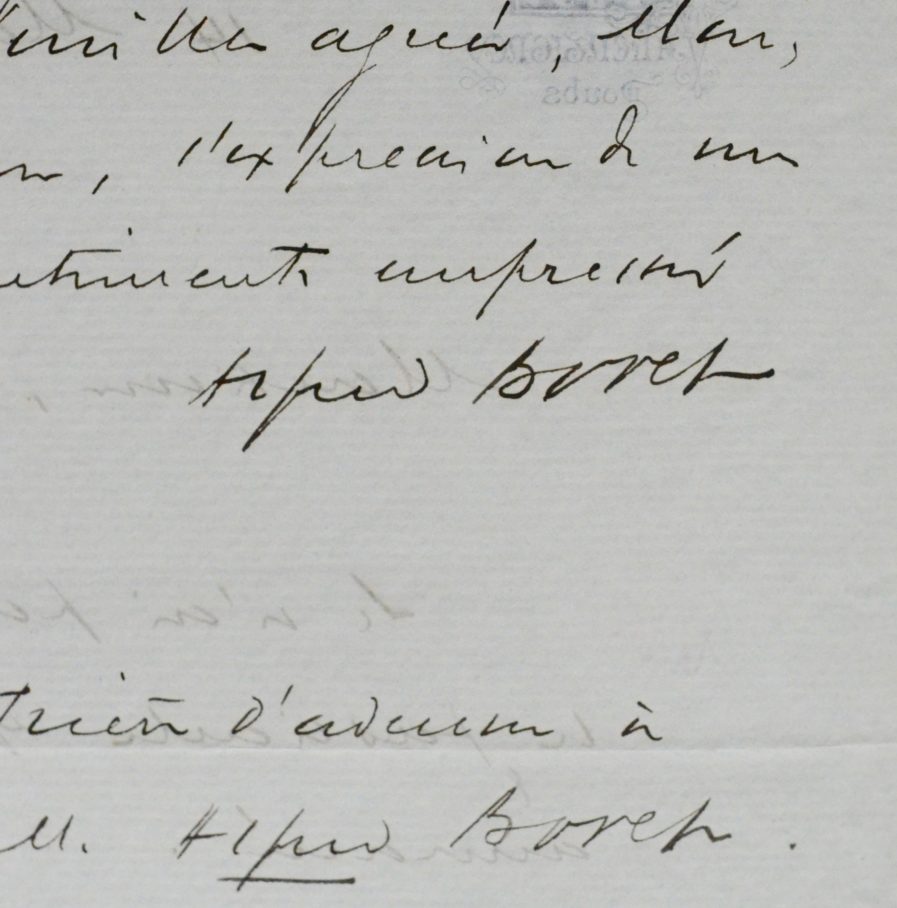 Veuillez agréer, Mon,
, l'expression de mes
ntiments empressés
Alfred Bovet
Prière d'adresser à
M. Alfred Bovet.